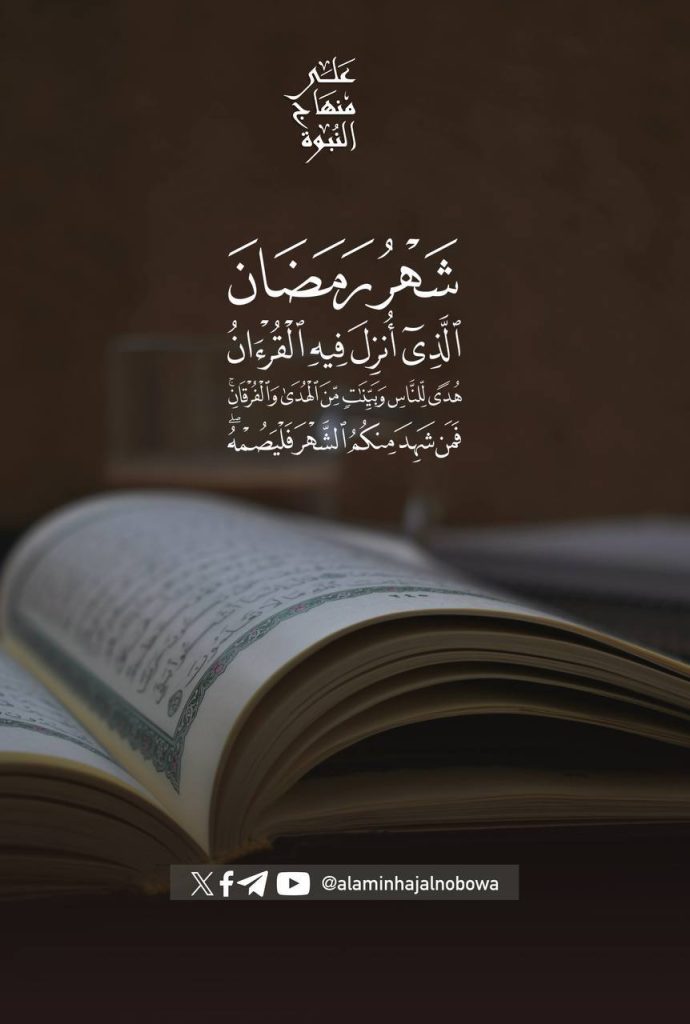 عَلَى
مِنهَاج
النُّبُوة
شَهْرُ رَمَضَانَ
ٱلَّذِىٓ أُنزِلَ فِيهِ ٱلْقُرْءَانُ
هُدًى لِّلنَّاسِ وَبَيِّنَٰتٍ مِّنَ ٱلْهُدَىٰ وَٱلْفُرْقَانِۚ
فَمَن شَهِدَ مِنكُمُ ٱلشَّهْرَ فَلْيَصُمْهُۖ
٢٤٥
@alaminhajalnobowa